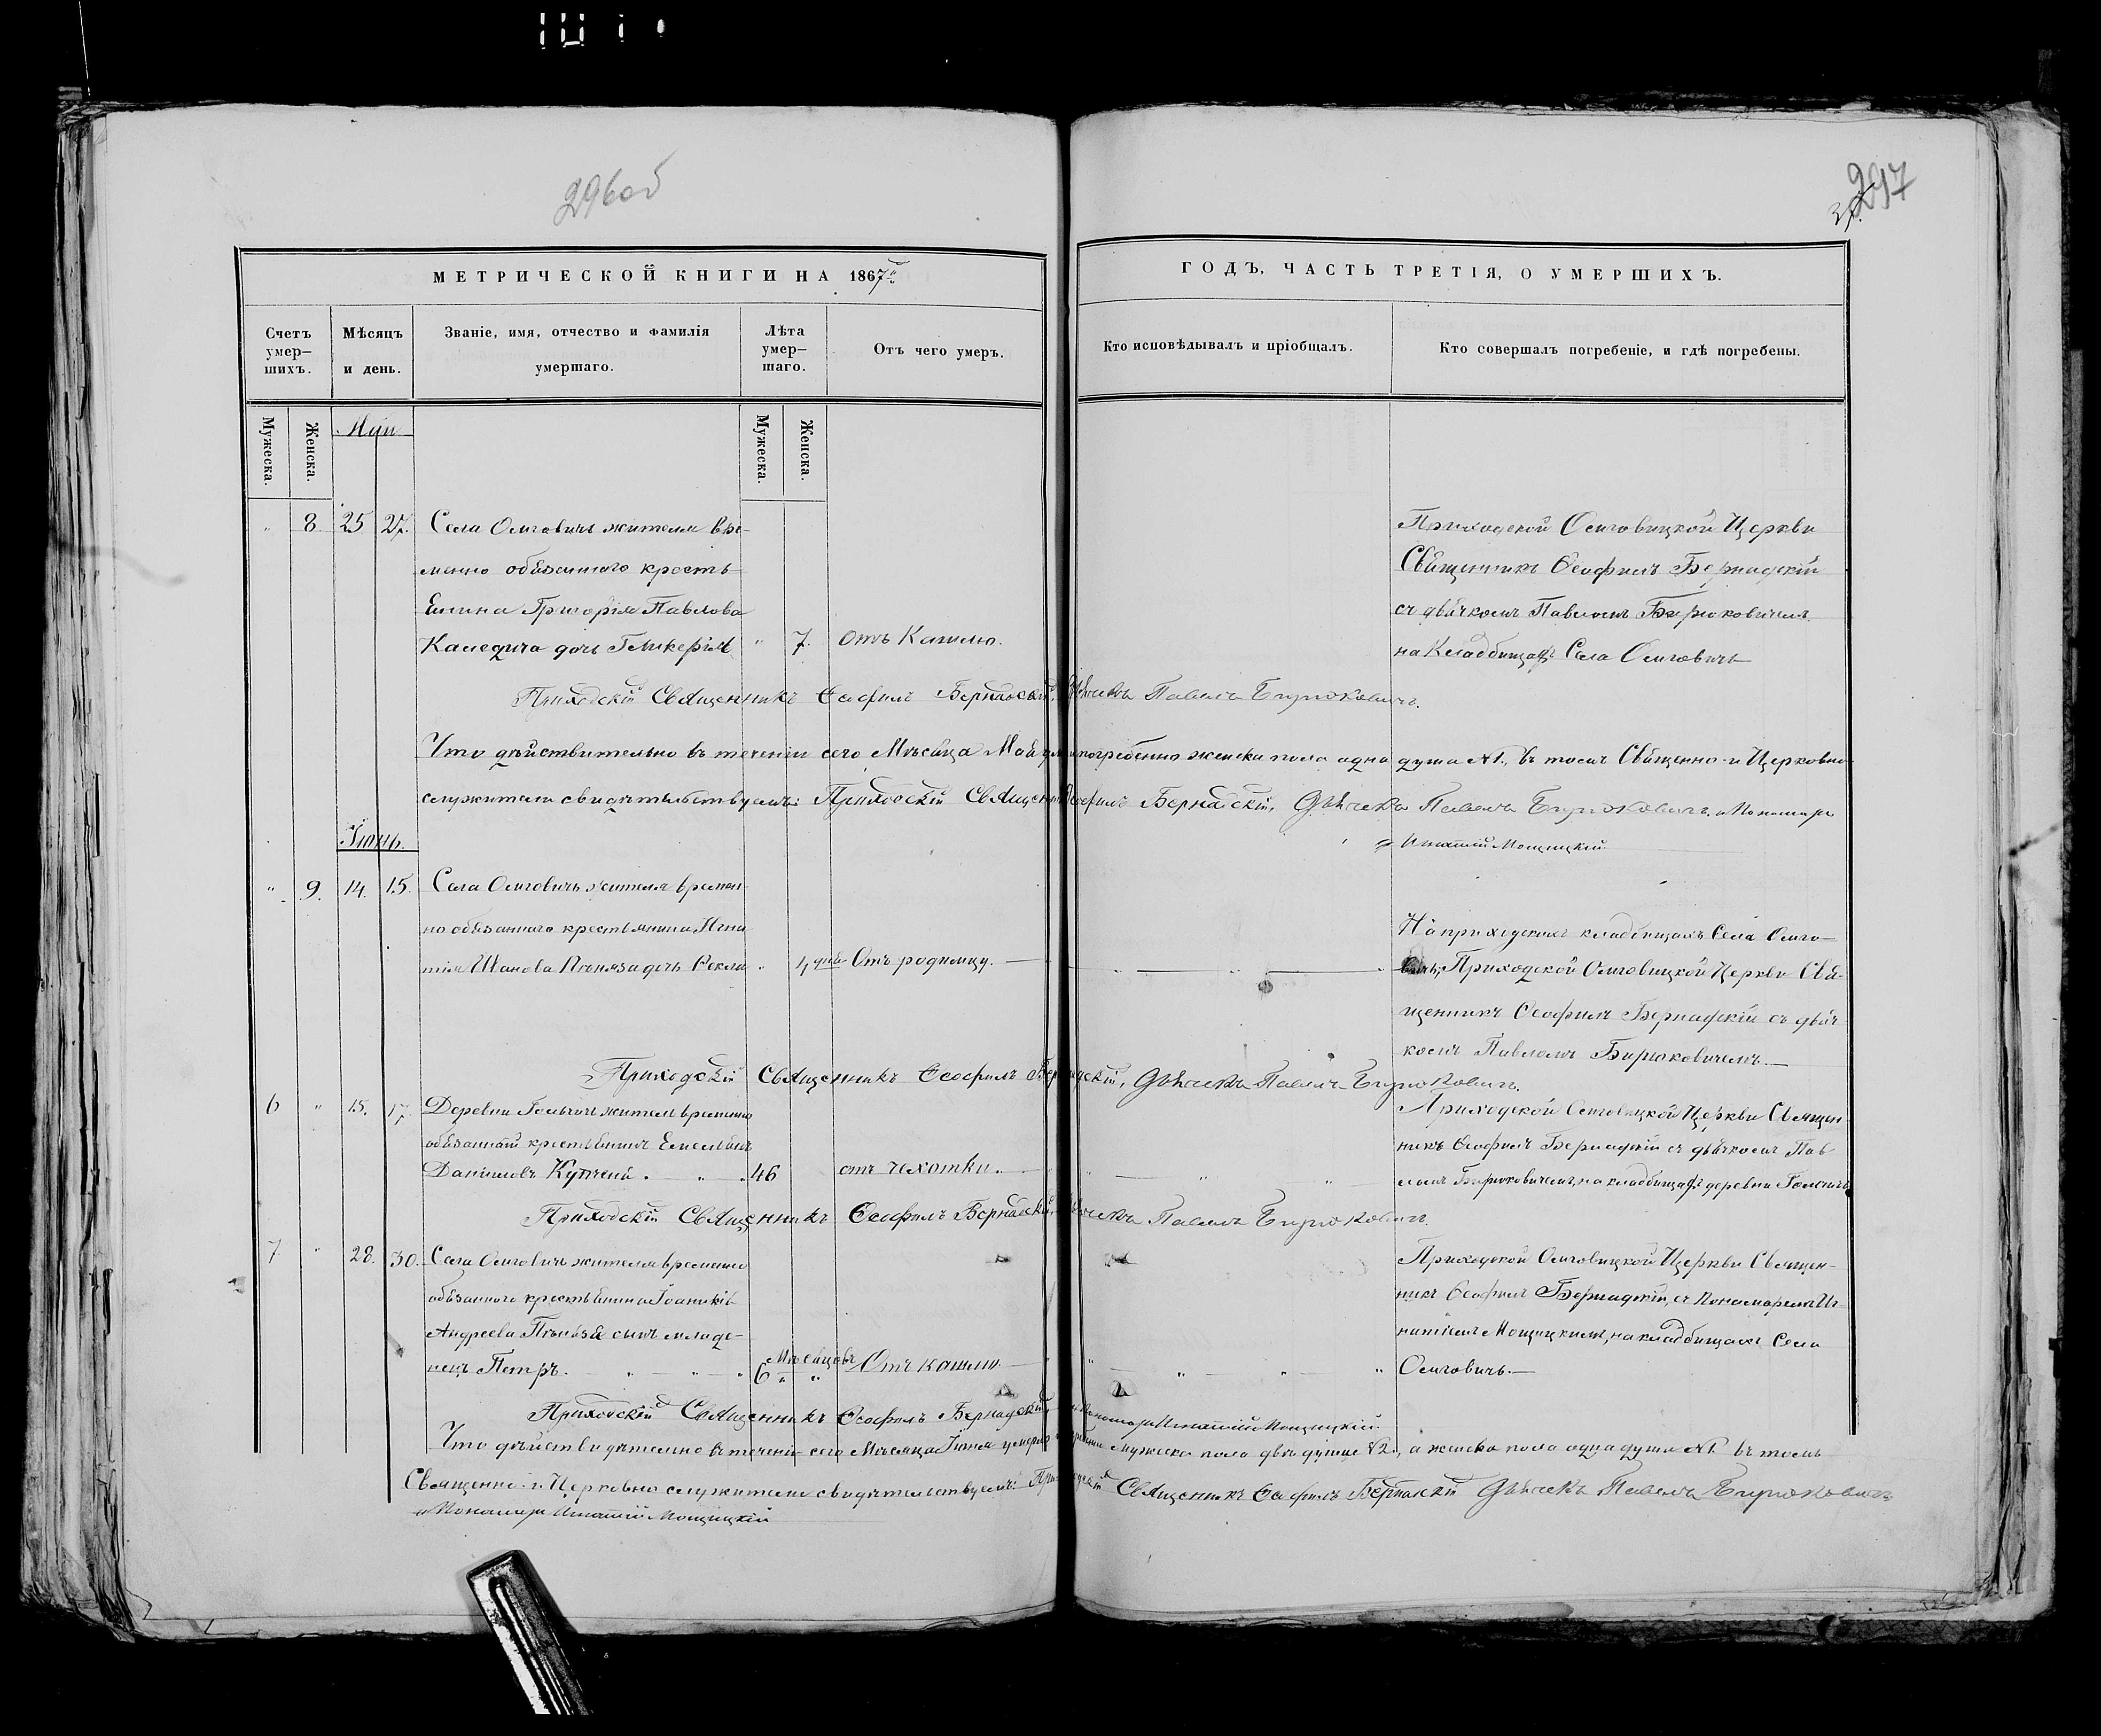 296об
297
МЕТРИЧЕСКОЙ КНИГИ НА 1867й
ГОДЪ, ЧАСТЬ ТРЕТІЯ, О УМЕРШИХЪ.
Счетъ умер—шихъ.
Мѣсяцъ и день.
Званіе, имя, отчество и фамилія умершаго.
Лѣта умер—шаго.
Отъ чего умеръ.
Кто исповѣдывалъ и пріобщалъ.
Кто совершалъ погребеніе, и гдѣ погребены.
Мужеска.
Женска.
Мужеска.
Женска.
Май
" 8 25 27.
Села Олиговичь жителя вре-
менно обязаннаго кресть-
янина Григорія Павлова
дочь Гликерія " 7. отъ Кашлю.
Приходской Олиговицкой Церкви
Священникъ Ѳеофилъ Бернадскій
съ дьячкомъ Павломъ Бирюковичемъ
на Кладбищахъ Села Олиговичь
Приходскій Священникъ Ѳеофилъ Бернадскій, Дьячекъ Павелъ Бирюковичъ.
Что дѣйствительно въ теченіи сего Мѣсяца Мая погребенно женска пола одна душа №1., въ томъ Священно- и Церковно
служители свидѣтельствуемъ: Приходскій Священникъ Ѳеофилъ Бернадскій, Дьячекъ Павелъ Бирюковичъ, и Пономарь
Игнатій Мощицкій
Іюнь.
" 9. 14. 15.
Села Олиговичь жителя времен-
но обязаннаго крестьянина Игна
тія Иванова дочь Ѳекла " 4 дня Отъ родимцу.
На приходскихъ кладбищахъ Села Олиго—
вичь, Приходской Олиговицкой Церкви Свя-
щенникъ Ѳеофилъ Бернадскій съ дьяч
комъ Павломъ Бирюковичемъ.—
Приходскій Священникъ Ѳеофилъ Бернадскій, Дьячекъ Павелъ Бирюковичъ.
6 " 15. 17.
Деревни житель временно
обязанный крестьянинъ Емельянъ
Даніиловъ 46 отъ чехотки.
Приходской Олиговицкой Церкви Священ-
никъ Ѳеофилъ Бернадскій съ дьячкомъ Пав
ломъ Бирюковичемъ, на кладбищахъ деревни
Приходскій Священникъ Ѳеофилъ Бернадскій, Дьячекъ Павелъ Бирюковичъ.
7 " 28. 30.
Села Олиговичь жителя временно
обязаннаго крестьянина Іоаникія
Андреева сынъ младе-
нецъ Петръ. 6 Мѣсяцовъ Отъ кашлю.
Приходской Олиговицкой Церкви Священ-
никъ Ѳеофилъ Бернадскій, съ Пономаремъ Иг-
натіемъ Мощицкимъ, на кладбищахъ Села
Олиговичь.—
Приходскій Священникъ Ѳеофилъ Бернадскій, Пономарь Игнатій Мощицкій
Что дѣйствительно въ теченіи сего Мѣсяца Іюня умерло мужеска пола двѣ души №2., а женска пола одна душа №1. въ томъ
Священно- и Церковно служители свидѣтельствуемъ: Приходскій Священникъ Ѳеофилъ Бернадскій Дьячекъ Павелъ Бирюковичъ
и Пономарь Игнатій Мощицкій